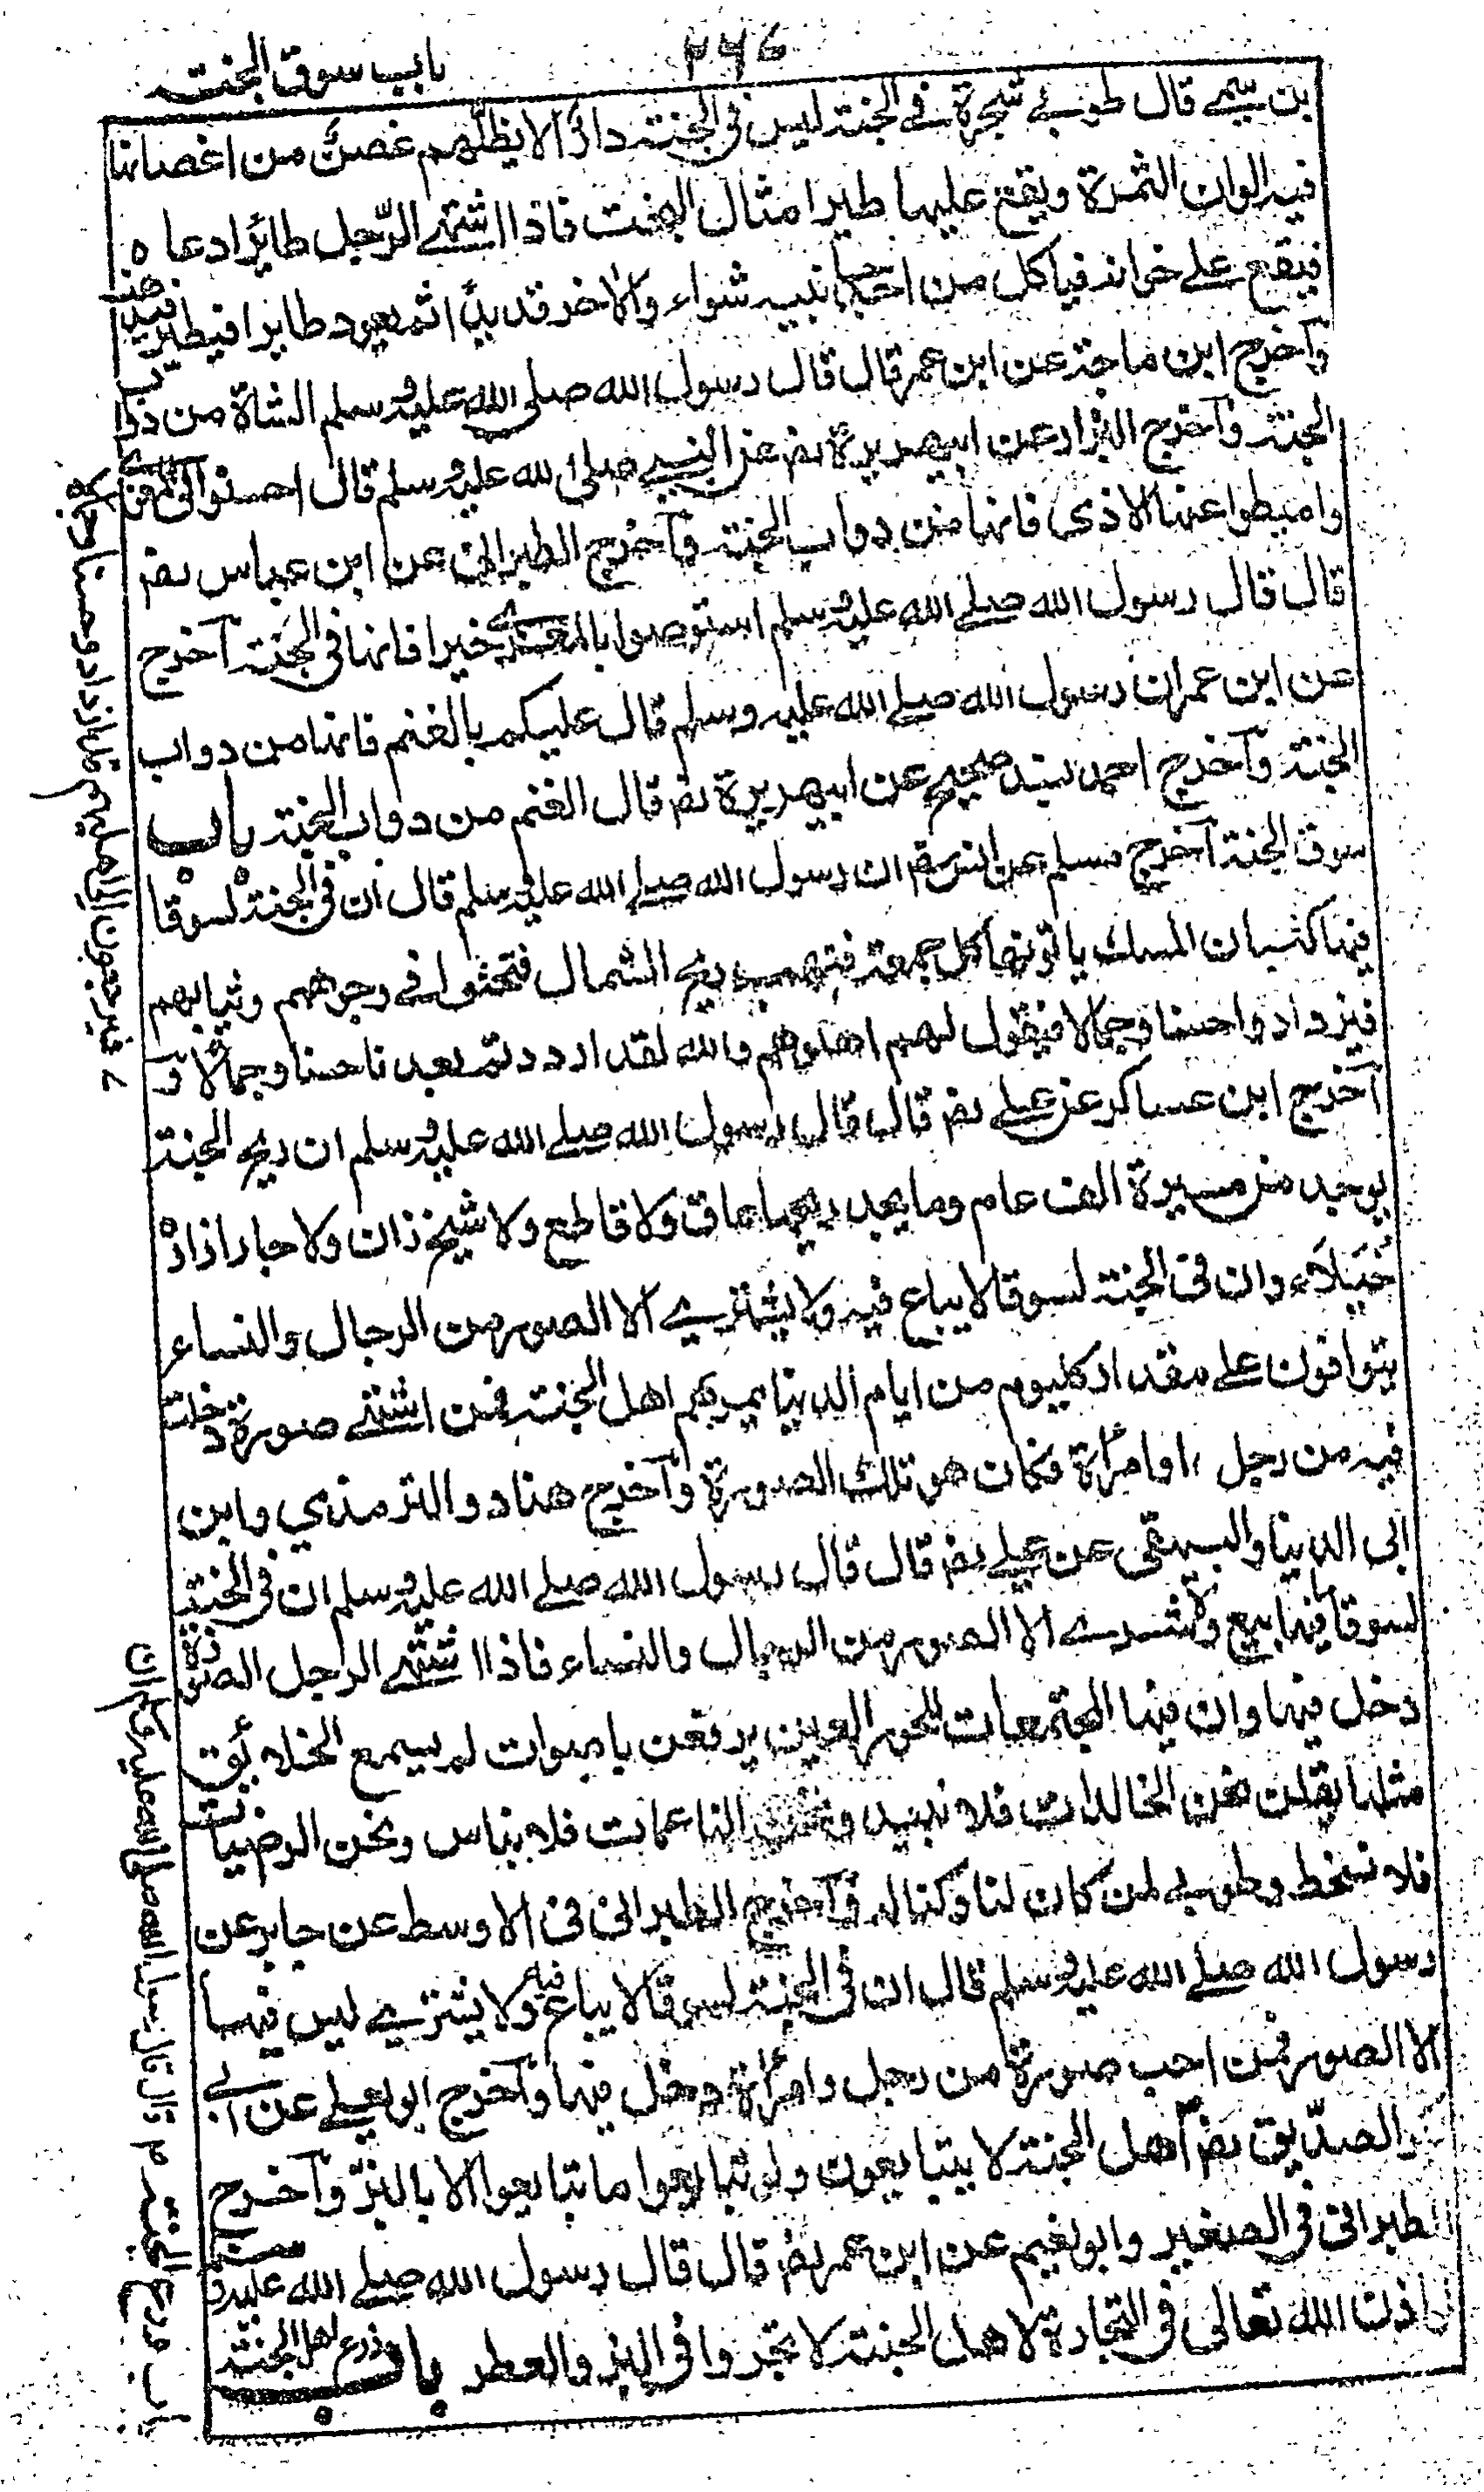 باب سوق الجنت
۲۴۶
بن سمے قال طوبے شجرة فے الجنتہ لیس فی الجنتہ دارٌ الا یظلّهم غصنٌ من اغصانها
فیہ الوان الثمرة ویقع علیها طیر امثال البخت فاذا اشتهے الرّجل طائرًا دعا ه
فیقع علے خوانہ فیاکل من احد جانبیہ شواء والاخر قدیدًا ثم یعود طایرا فیطیر فیذهب
وآخرج ابن ماجتہ عن ابن عمر قال قال رسول اللہ صلی اللہ علیہ وسلم الشاة من دواب
الجنتہ وآخرج البزار عن ابیهریرة رضہ عن النبے صلی اللہ علیہ وسلم قال احسنوا الی المعزے
وامیطوا عنها الاذی فانها من دواب الجنتہ وآخرج الطبرانی عن ابن عباس رضہ
قال قال رسول اللہ صلے اللہ علیہ وسلم استوصوا بالمعزے خیرا فانها فی الجنتہ آخرج
عن ابن عمر ان رسول اللہ صلے اللہ علیہ وسلم قال علیکم بالغنم فانها من دواب
الجنتہ وآخرج احمد بسند صحیح عن ابیهریرة رضہ قال الغنم من دواب الجنتہ باب
سوق الجنتہ آخرج مسلم عن انس رضہ ان رسول اللہ صلے اللہ علیہ وسلم قال ان فی الجنتہ لسوقا
فیها کثبان المسک یاتونها کل جمعتہ فتهب ریح الشمال فتحثوا فے وجوههم وثیابهم
فیزدادوا حسنا وجمالا فیقول لهم اهلوهم واللہ لقد ازددتم بعدنا حسنا وجمالًا وٓ
آخرج ابن عساکر عن علے رضہ قال قال رسول اللہ صلے اللہ علیہ وسلم ان ریح الجنتہ
یوجد من مسیرة الف عام وما یجد ریحها عاق ولا قاطع ولا شیخ زان ولا جار ازاره
خُیَلَاء وان فی الجنتہ لسوقا لا یباع فیہ ولا یشترے الا الصور من الرجال والنساء
یتوافون علے مقدار کلیوم من ایام الدنیا یمر بهم اهل الجنتہ فمن اشتهے صورة دخلت
فیہ من رجل او امرأة فکان هو تلک الصورة وآخرج هناد والترمذی وابن
ابی الدنیا والبیهقی عن علے رضہ قال قال رسول اللہ صلے اللہ علیہ وسلم ان فی الجنتہ
لسوقا ما فیها بیع ولا شرے الا الصور من الرجال والنساء فاذا اشتهے الرجل الصورة
دخل فیها وان فیها المجتمعات للحور العین یرفعن باصوات لم یسمع الخلائق
مثلها یقلن نحن الخالدات فلا نبید ونحن الناعمات فلا نباس ونحن الرضیات
فلا نسخط وطوبے لمن کان لنا وکنا لہ وآخرج الطبرانی فی الاوسط عن جابر عن
رسول اللہ صلے اللہ علیہ وسلم قال ان فی الجنتہ لسوقا لا یباع فیہ ولا یشترے لیس فیها
الا الصور فمن احب صورة من رجل وامرأة دخل فیها وآخرج ابو یعلے عن ابے
بکر الصدّیق رضہ اهل الجنتہ لا یتبایعون ولو تبایعوا ما تبایعوا الا بالبزّ وآخرج
لطبرانی فی الصغیر وابو نعیم عن ابن عمر رضہ قال قال رسول اللہ صلے اللہ علیہ وسلم
لو اذن اللہ تعالی فی التجارة لاهل الجنتہ لا تجروا فی البز والعطر باب وزرع اهل الجنتہ
ے فیرجعون الی اهلیهم وقد ازدادوا حسنا وجمالا
الجنتہ م قال قال رسول اللہ صلی اللہ علیہ وسلم ان
باب وزرع